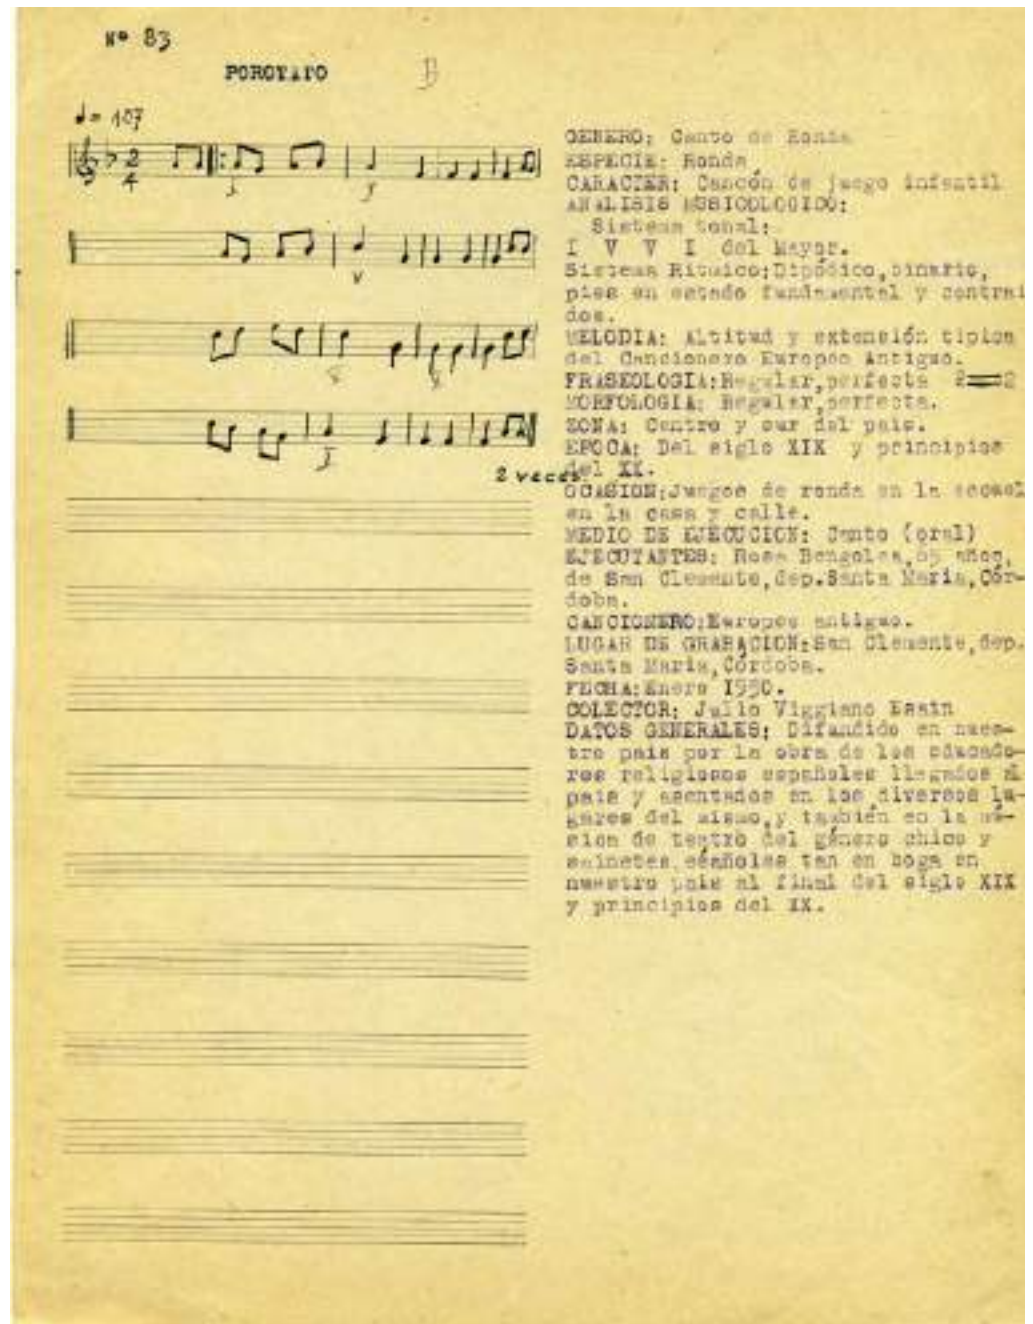 Nº 83
POROTATO B
♩= 107
2
4
V
2 veces
GENERO: Canto de Ronda
ESPECIE: Ronda
CARACTER: Cancón de juego infantil
ANALISIS MUSICOLOGIDO:
Sistema tonal:
I V V I del Mayor.
Sistema Ritmico:Dipódico,binario,
pies en estado fundamental y contrai
dos.
MELODIA: Altitud y extensión tipica
del Cancionero Europeo Antiguo.
FRASEOLOGIA:Regular,perfecta 2 2
MORFOLOGIA: Regular,perfecta.
ZONA: Centro y sur del pais.
EPOCA: Del siglo XIX y principios
del XX.
OCASION:Juegos de ronda en la escuel
en la casa y calle.
MEDIO DE EJECUCION: Canto (oral)
EJECUTANTES: Rosa Bengolea, años,
de San Clemente,dep.Santa Maria,Cór-
doba.
CANCIONERO:Europeo antiguo.
LUGAR DE GRABACION:San Clemente,dep.
Santa Maria,Córdoba.
FECHA:Enero 1950.
COLECTOR: Julio Viggiano Esain
DATOS GENERALES: Difundido en nues-
tro pais por la obra de los educado-
res religiosos españoles llegados al
pais y asentados en los diversos lu-
gares del mismo,y también en la mú-
sica de teatro del género chico y
sainetes eśañoles tan en boga en
nuestro pais al final del siglo XIX
y principios del XX.